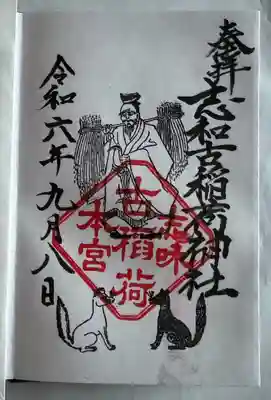 奉拝
志和古稲荷神社
志味
古稲荷
本宮
令和六年九月八日